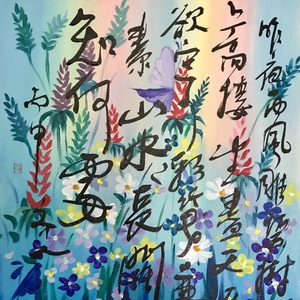 昨夜西風雕碧樹
上高樓望盡天
欲寄彩箋兼
素山水長闊
知何處
丙申